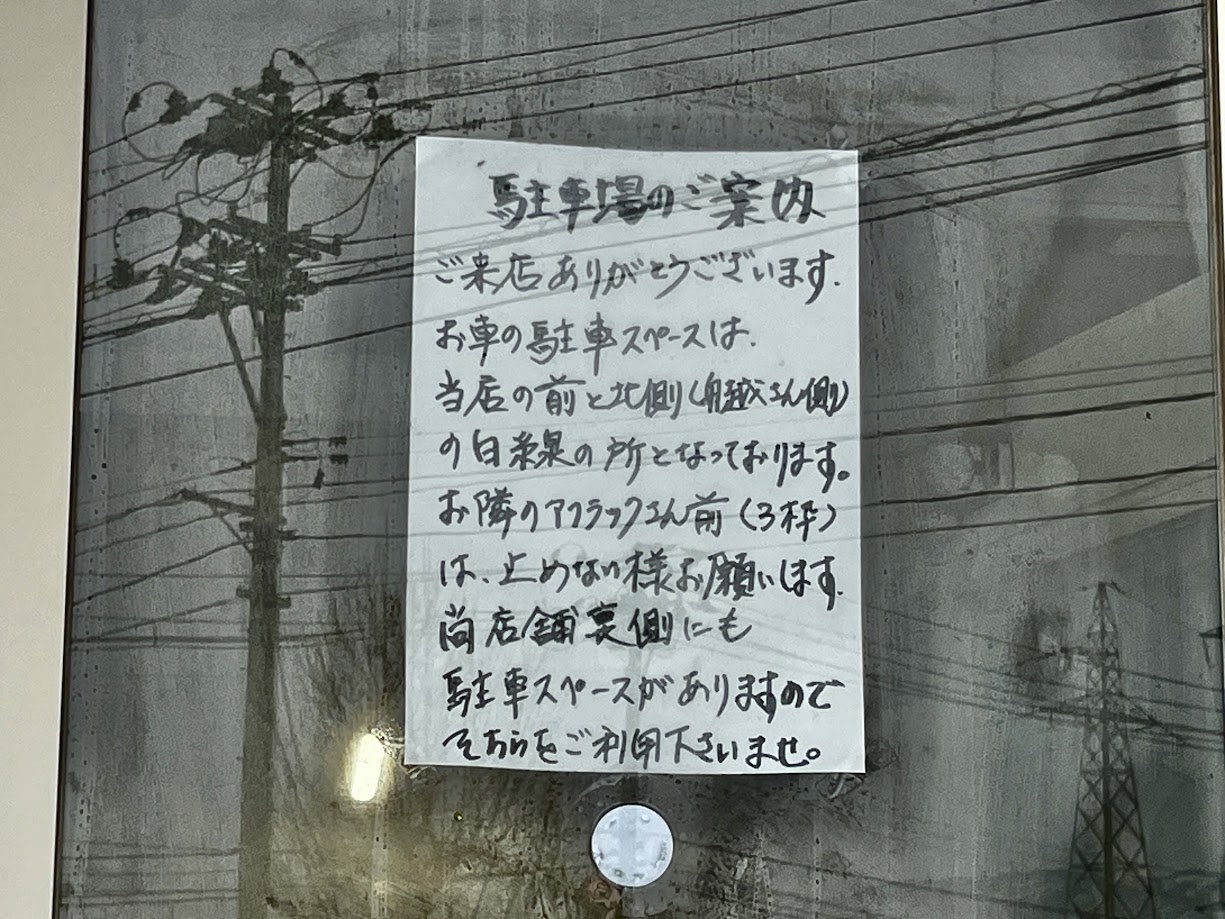 駐車場のご案内
ご来店ありがとうございます.
お車の駐車スペースは.
当店の前と北側(船越さん側)
の白線の所となっております。
お隣のアフラックさん前(3枠)
は、止めない様お願いします.
尚店舗裏側にも
駐車スペースがありますので
そちらをご利用下さいませ。